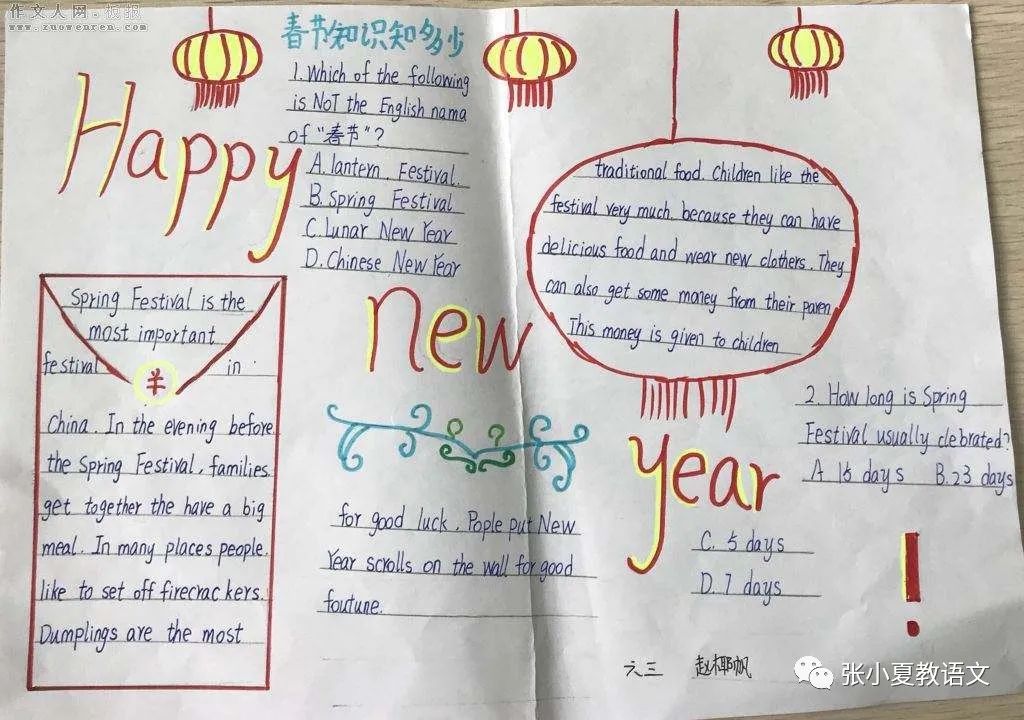 作文人网.板报
www.zuowenren.com
春节知识知多少
1. Which of the following
is NOT the English nama
of "春节"?
A. lantern. Festival.
B. Spring Festival
C. Lunar New Year
D. Chinese New Year
Happy
new
year
!
Spring Festival is the
most important
festival in
羊
China. In the evening before
the Spring Festival, families
get together the have a big
meal. In many places people.
like to set off firecrackers.
Dumplings are the most
traditional food. Children like the
festival very much. because they can have
delicious food and wear new clothers. They
can also get some maney from their paren
This money is given to children
for good luck. Pople put New
Year scrolls on the wall for good
foutune.
2. How long is Spring
Festival usually clebrated?
A 15 days B. 23 days
C. 5 days
D. 7 days
六三 赵椰帆
张小夏教语文